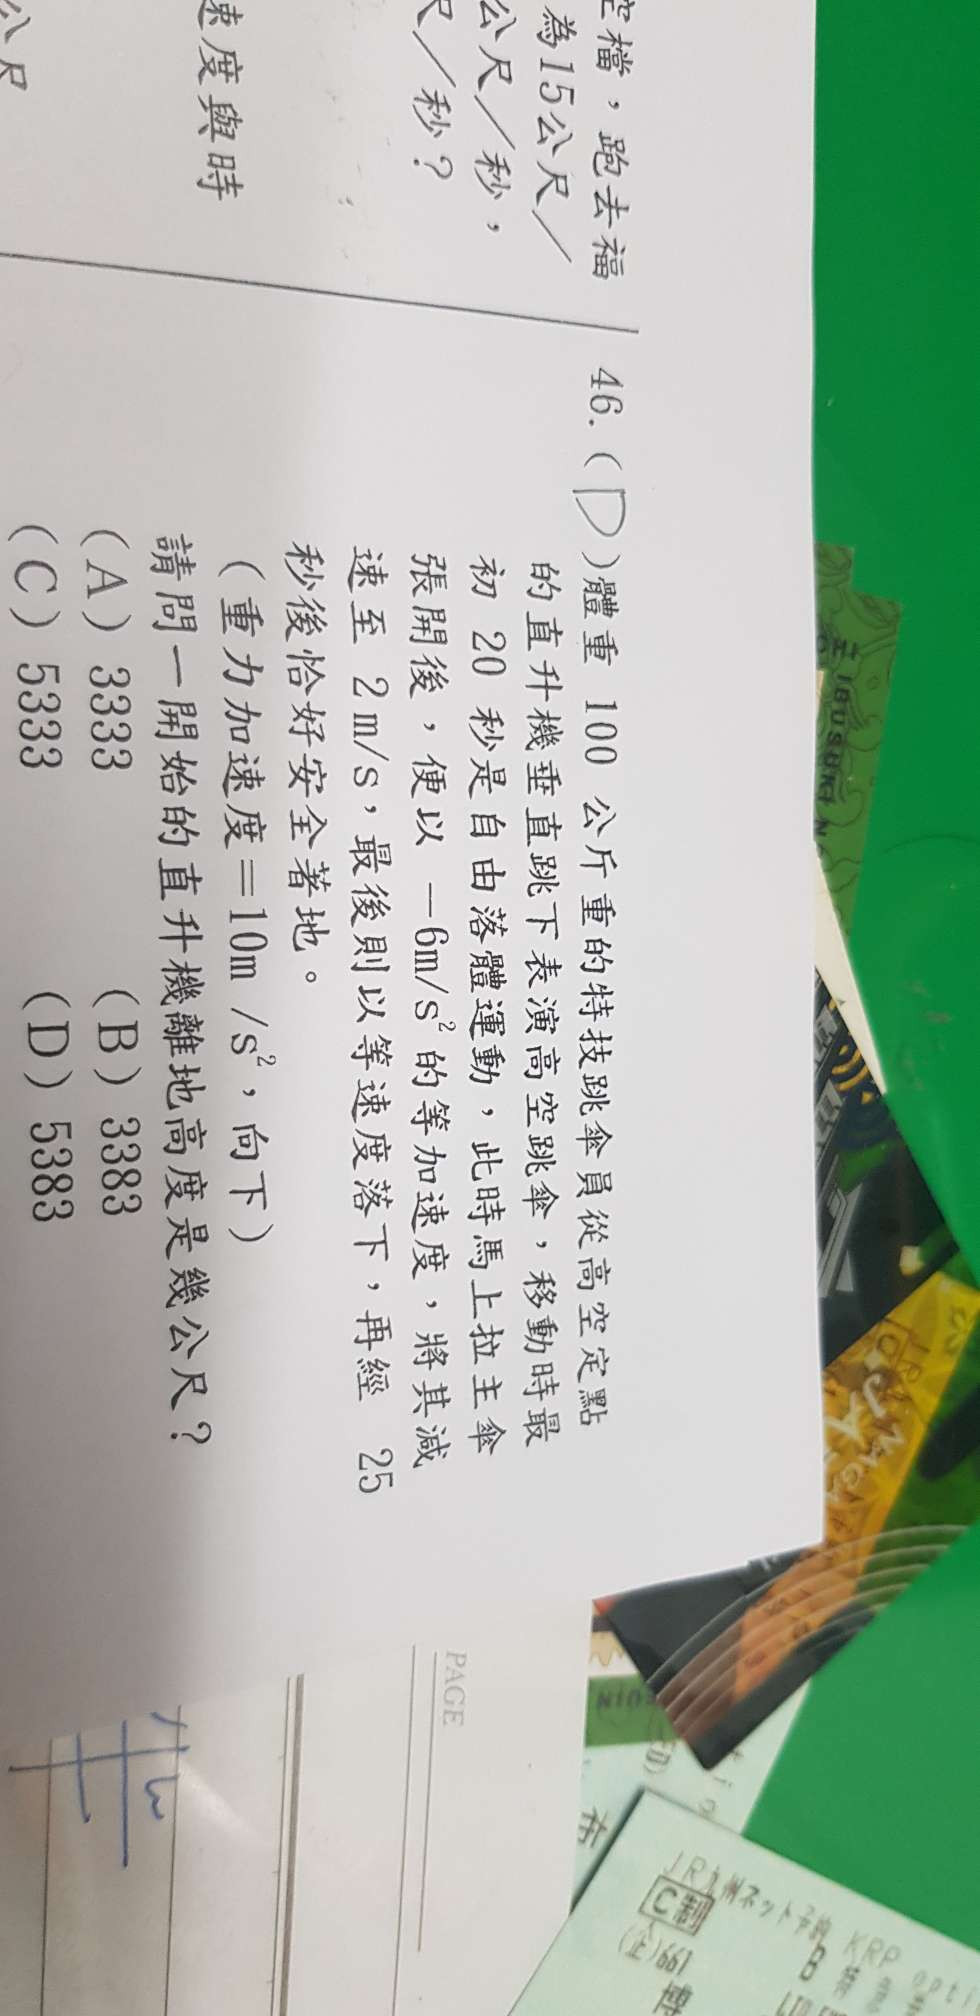 空檔，跑去福
為15公尺／
公尺／秒，
尺／秒？
速度與時
公尺
46.(D)體重 100 公斤重的特技跳傘員從高空定點
的直升機垂直跳下表演高空跳傘，移動時最
初 20 秒是自由落體運動，此時馬上拉主傘
張開後，便以 －6m/s²的等加速度，將其減
速至 2m/s，最後則以等速度落下，再經 25
秒後恰好安全著地。
(重力加速度＝10m /s²，向下)
請問一開始的直升機離地高度是幾公尺？
(A) 3333 (B) 3383
(C) 5333 (D) 5383
PAGE
IBUSUKI
JR九州ネット予約 KRP
C制
B
博